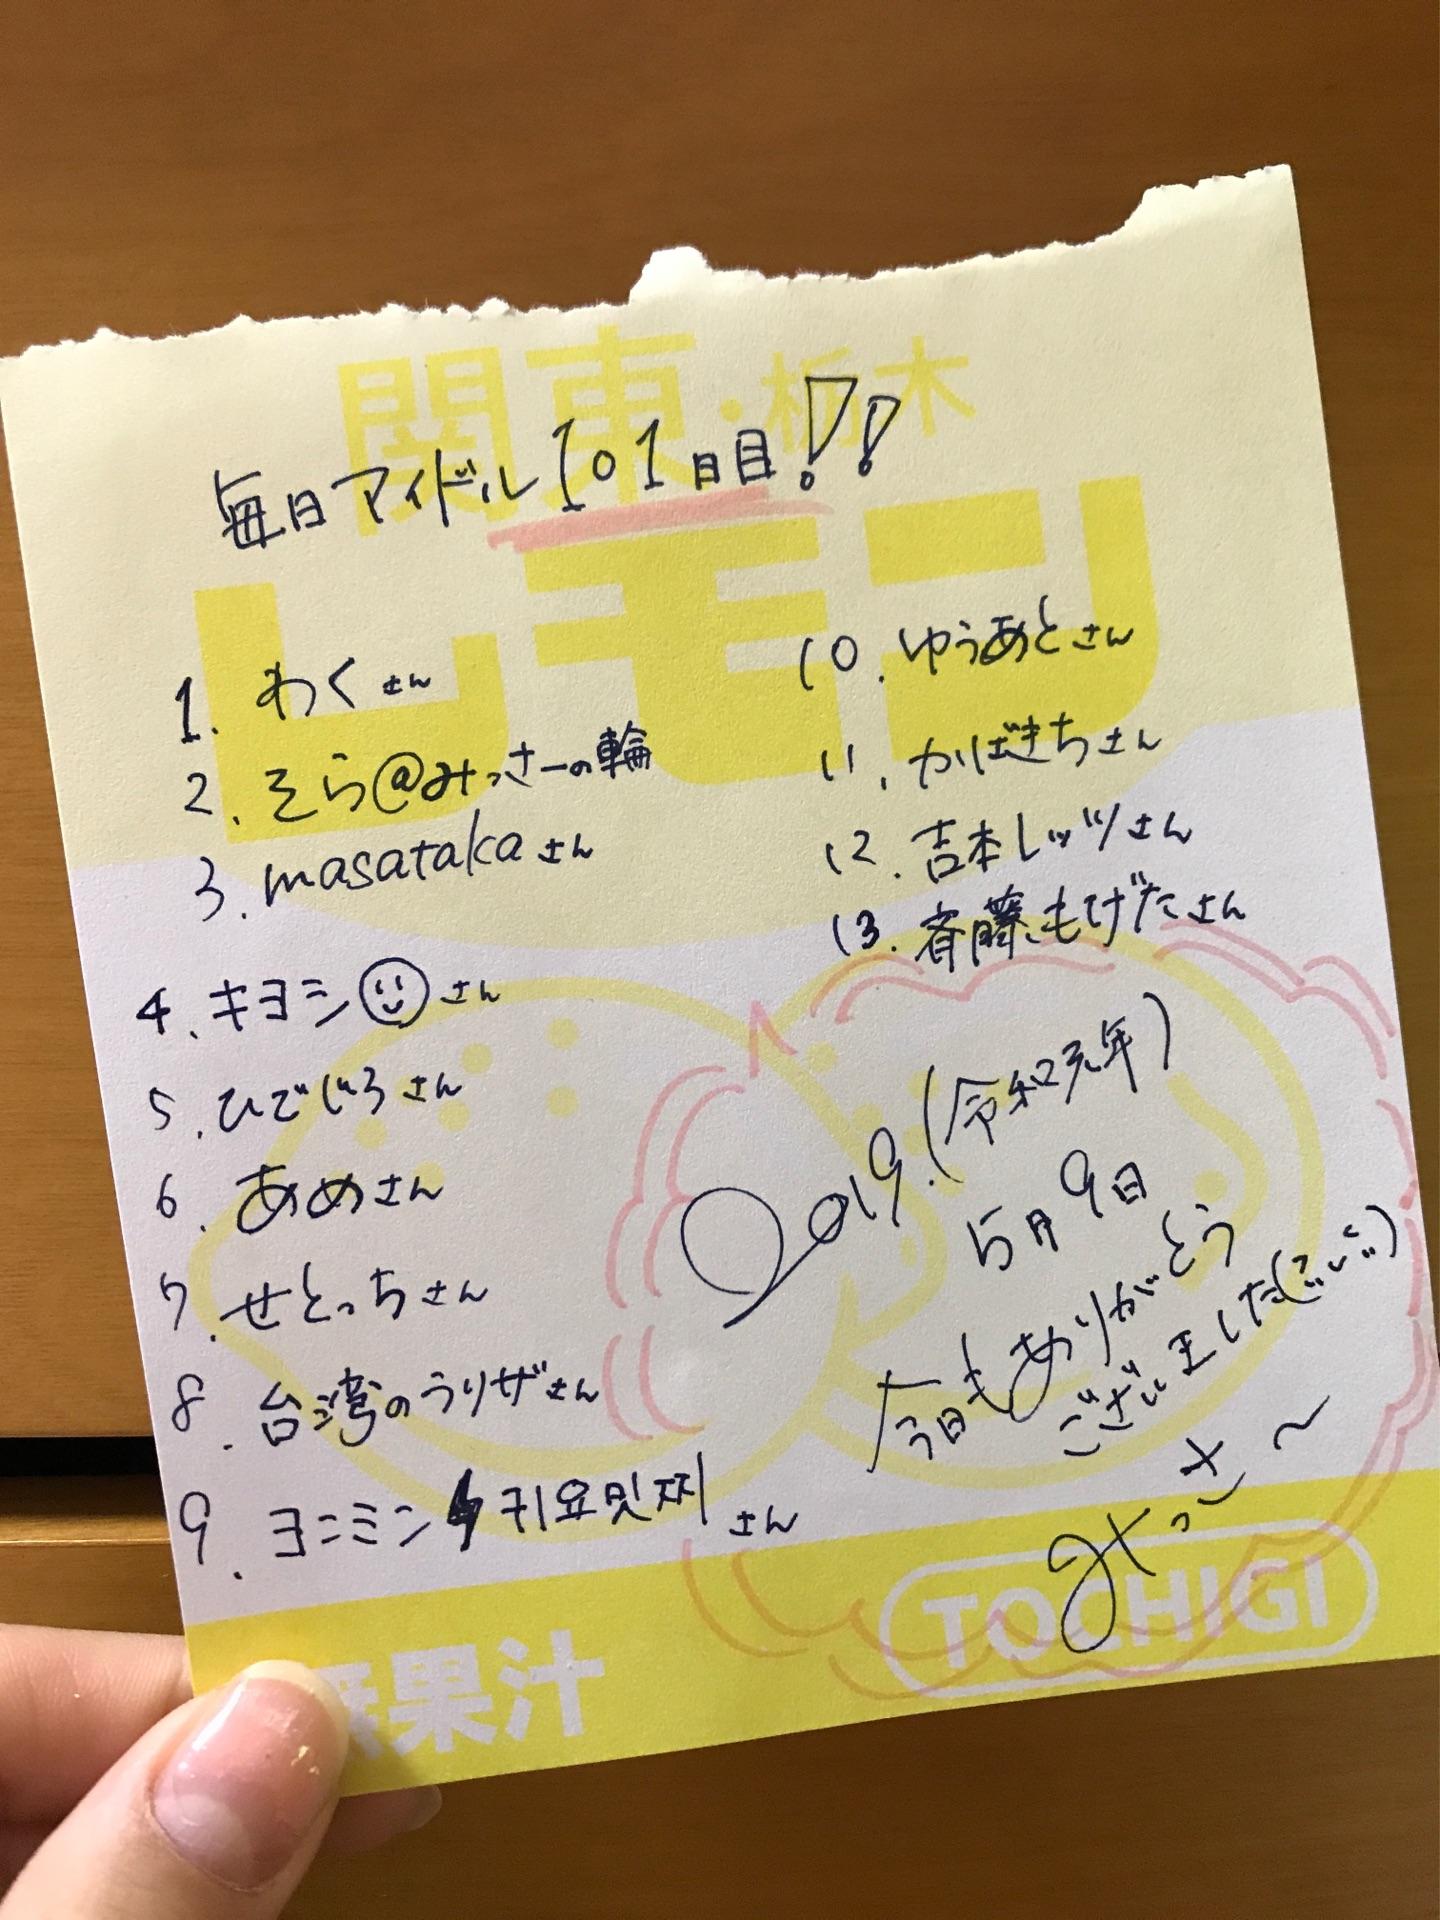 関東・栃木
レモン
毎日アイドル101日目!!
1. わくさん
2. そら@みっさーの輪
3. masatakaさん
4. キヨシ☺さん
5. ひでじろさん
6. あめさん
7. せとっちさん
8. 台湾のうりぜさん
9. ヨニミン⚡키요밋찌さん
10. ゆうあとさん
11. かばきちさん
12. 吉本レッツさん
13. 斉藤もげたさん
2019.(令和元年)
5月9日
今日もありがとう
ございました(ごいごい)
みっさ〜
無果汁
TOCHIGI